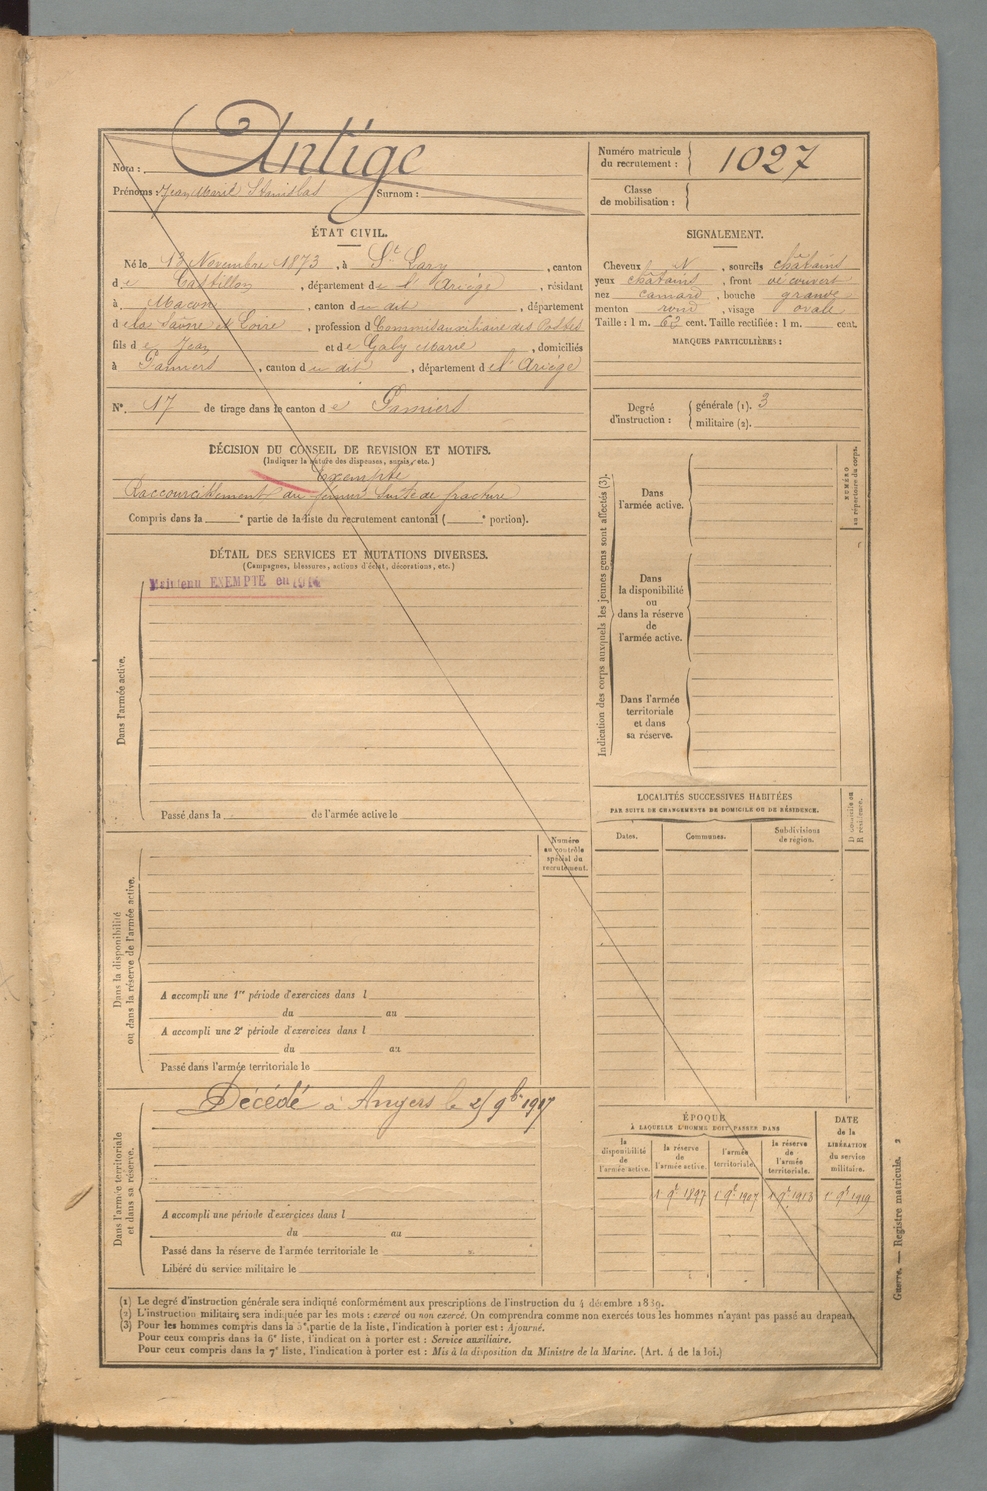 Nom : Antige
Prénoms : Jean Marie Stanislas Surnom :
Numéro matricule du recrutement : 1027
Classe de mobilisation :
ÉTAT CIVIL.
Né le 13 Novembre 1873, à St Lary, canton
de Castillon, département de l'Ariège, résidant
à Macon, canton du dit, département
de la Saône et Loire, profession de Commis auxiliaire des Postes
fils de Jean et de Galy Marie, domiciliés
à Pamiers, canton du dit, département de l'Ariège
N° 17 de tirage dans le canton de Pamiers
SIGNALEMENT.
Cheveux N, sourcils châtains
yeux châtains, front découvert
nez camard, bouche grande
menton rond, visage ovale
Taille : 1 m. 63 cent. Taille rectifiée : 1 m. cent.
MARQUES PARTICULIÈRES :
Degré d'instruction : générale (1). 3
militaire (2).
DÉCISION DU CONSEIL DE REVISION ET MOTIFS.
(Indiquer la nature des dispenses, sursis, etc.)
Exempté
Raccourcissement du fémur. Suite de fracture
Compris dans la e partie de la liste du recrutement cantonal ( e portion).
DÉTAIL DES SERVICES ET MUTATIONS DIVERSES.
(Campagnes, blessures, actions d'éclat, décorations, etc.)
Maintenu EXEMPTE en 1914
Dans l'armée active.
Passé dans la de l'armée active le
Numéro au contrôle spécial du recrutement.
Dans la disponibilité ou dans la réserve de l'armée active.
A accompli une 1re période d'exercices dans l
du au
A accompli une 2e période d'exercices dans l
du au
Passé dans l'armée territoriale le
Dans l'armée territoriale et dans sa réserve.
Décédé à Angers le 9bre 1917
A accompli une période d'exercices dans l
du au
Passé dans la réserve de l'armée territoriale le
Libéré du service militaire le
Indication des corps auxquels les jeunes gens sont affectés (3).
Dans l'armée active.
Dans la disponibilité ou dans la réserve de l'armée active.
Dans l'armée territoriale et dans sa réserve.
NUMÉRO au répertoire du corps.
LOCALITÉS SUCCESSIVES HABITÉES
PAR SUITE DE CHANGEMENTS DE DOMICILE OU DE RÉSIDENCE.
Dates. Communes. Subdivisions de région. D domicile ou R résidence.
ÉPOQUE
À LAQUELLE L'HOMME DOIT PASSER DANS
la disponibilité de l'armée active. la réserve de l'armée active. l'armée territoriale. la réserve de l'armée territoriale.
DATE de la LIBÉRATION du service militaire.
1 9e 1897 1 9e 1907 1 9e 1913 1 9e 1919
(1) Le degré d'instruction générale sera indiqué conformément aux prescriptions de l'instruction du 4 décembre 1889.
(2) L'instruction militaire sera indiquée par les mots : exercé ou non exercé. On comprendra comme non exercés tous les hommes n'ayant pas passé au drapeau.
(3) Pour les hommes compris dans la 5e partie de la liste, l'indication à porter est : Ajourné.
Pour ceux compris dans la 6e liste, l'indication à porter est : Service auxiliaire.
Pour ceux compris dans la 7e liste, l'indication à porter est : Mis à la disposition du Ministre de la Marine. (Art. 4 de la loi.)
Guerre. — Registre matricule. 2